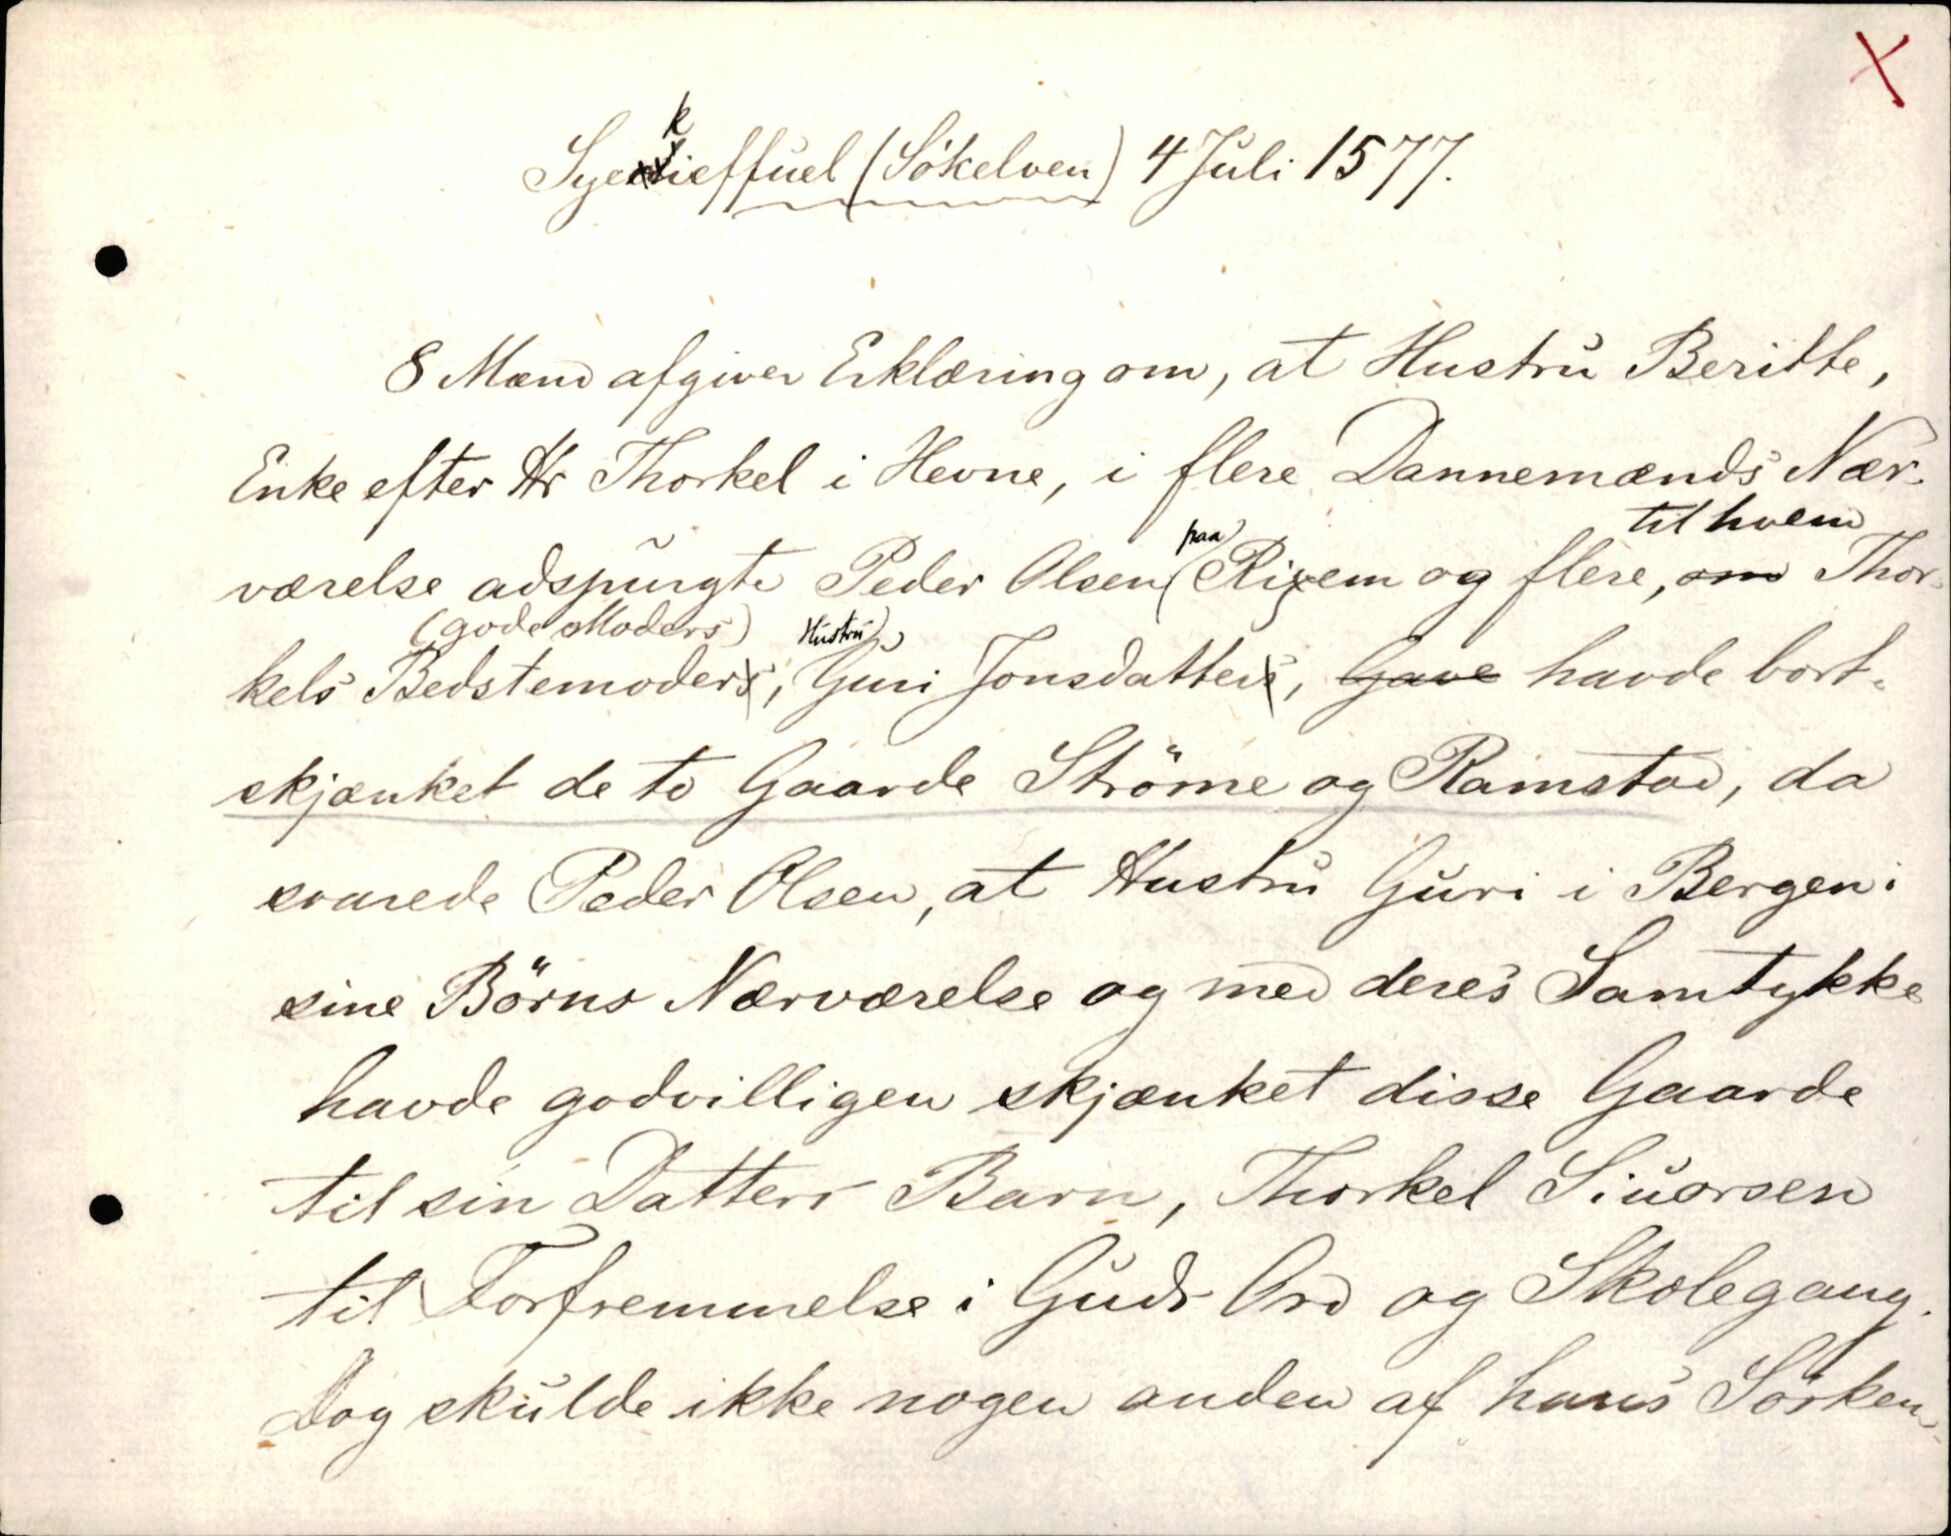 Syekieffuel (Sökelven) 4 Juli 1577.
8 Mænd afgiver Erklæring om, at Hustru Beritte,
Enke efter Hr Thorkel i Hevne, i flere Dannemænds Nær-
værelse adspurgte Peder Olsen (paa) Rixem og flere, om til hvem Thor-
kels Bedstemoders (gode Moders), (Hustru) Guri Jonsdatters, Gave havde bort-
skjænket de to Gaarde Ströme og Ramstad, da
svarede Peder Olsen, at Hustru Guri i Bergen i
sine Börns Nærværelse og med deres Samtykke
havde godvilligen skjænket disse Gaarde
til sin Datters Barn, Thorkel Siuorsen
til Forfremmelse i Guds Ord og Skolegang.
Dog skulde ikke nogen anden af hans Sösken-